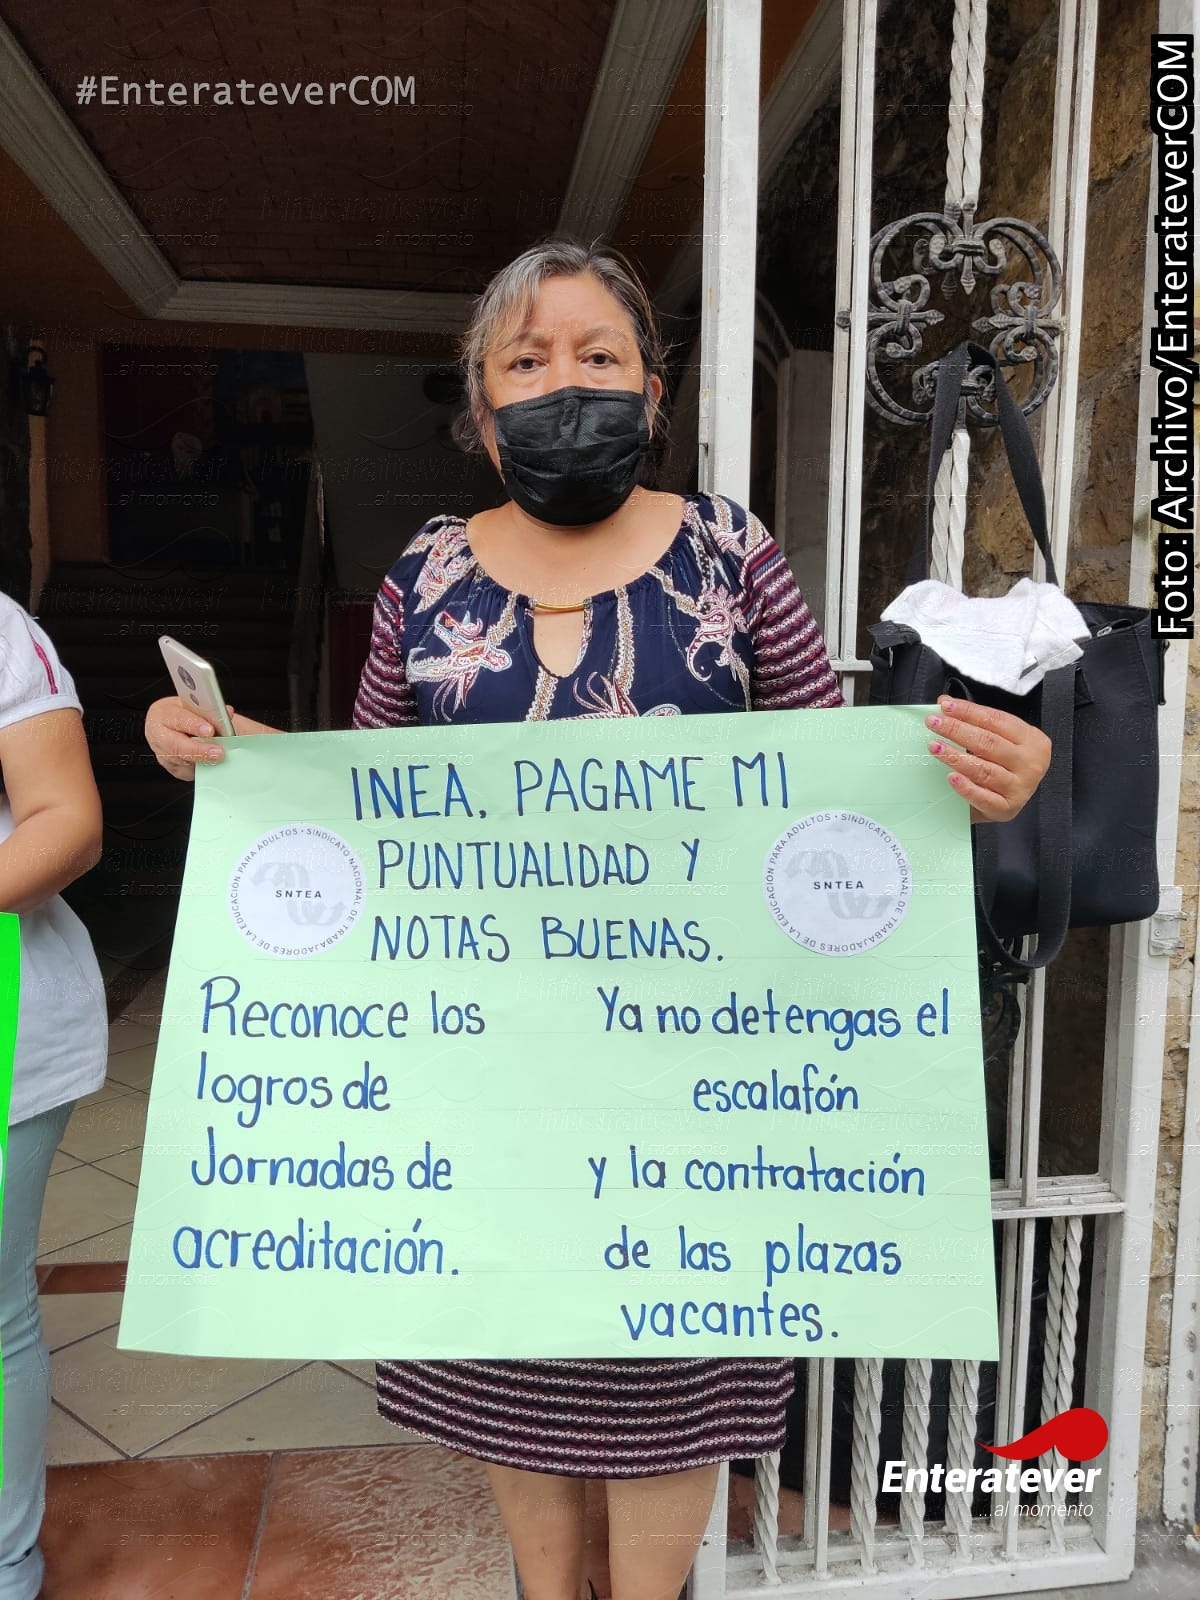 #EnterateverCOM
Foto: Archivo/EnterateverCOM
INEA, PAGAME MI
PUNTUALIDAD Y
NOTAS BUENAS.
SINDICATO NACIONAL DE TRABAJADORES DE LA EDUCACIÓN PARA ADULTOS •
SNTEA
SINDICATO NACIONAL DE TRABAJADORES DE LA EDUCACIÓN PARA ADULTOS •
SNTEA
Reconoce los
logros de
Jornadas de
acreditación.
Ya no detengas el
escalafón
y la contratación
de las plazas
vacantes.
Enteratever
...al momento